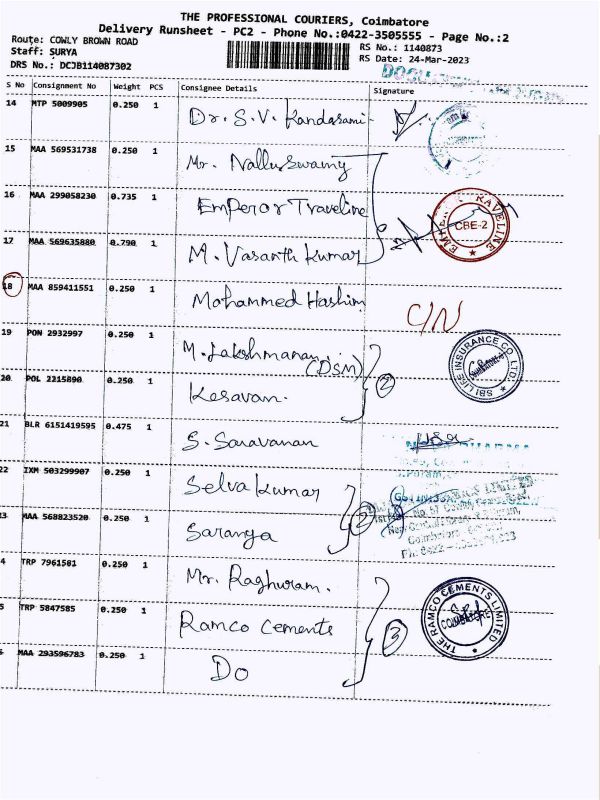 THE PROFESSIONAL COURIERS, Coimbatore
Delivery Runsheet - PC2 - Phone No.:0422-3505555 - Page No.:2
Route: COWLY BROWN ROAD
RS No.: 1140873
Staff: SURYA
RS Date: 24-Mar-2023
DRS No.: DCJB114087302
S No Consignment No Weight PCS Consignee Details Signature
14 MTP 5009905 0.250 1 Dr. S.V. Kandasami
15 MAA 569531738 0.250 1 Mr. Nalluswamy
16 MAA 299058230 0.735 1 Emperor Traveline
CBE-2
17 MAA 569635880 0.790 1 M. Vasanth Kumar
18 MAA 859411551 0.250 1 Mohammed Hashim C/N
19 PON 2932997 0.250 1 M. Lakshmanan.
(DSM)
SBI LIFE INSURANCE CO. LTD.
20. POL 2215890 0.250 1 Kesavan. 2
21 BLR 6151419595 0.475 1 S. Saravanan
22 IXM 503299907 0.250 1 Selva Kumar
3 MAA 568823520 0.250 1 Saranya 2
4 TRP 7961501 0.250 1 Mr. Raghuram.
5 TRP 5847585 0.250 1 Ramco Cements 3
THE RAMCO CEMENTS LIMITED
COIMBATORE
MAA 293596783 0.250 1 Do